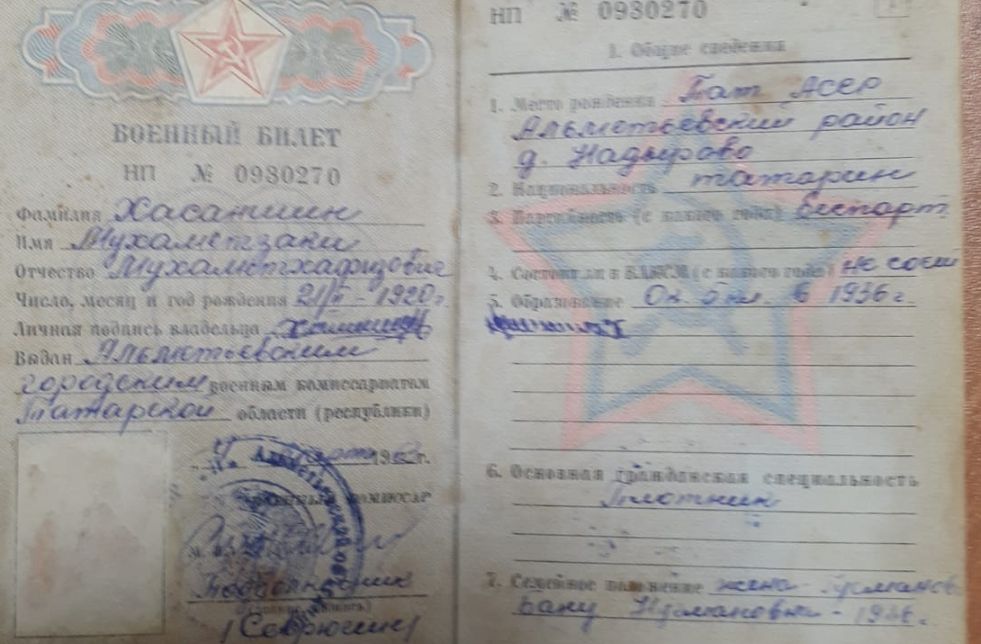 ВОЕННЫЙ БИЛЕТ
НП № 0930270
Фамилия Хасаншин
Имя Мухаметзани
Отчество Мухаметхафизович
Число, месяц и год рождения 21/II - 1920 г.
Личная подпись владельца
Выдан Альметьевским
городским военным комиссариатом
Татарской области (республики)
марта 196 г.
Военный комиссар
Подполковник
(Севрюгин)
НП № 0930270
1. Общие сведения
1. Место рождения Тат АССР
Альметьевский район
д. Надырово
2. Национальность татарин
3. Партийность (с какого года) беспарт
4. Состоял ли в ВЛКСМ (с какого года) не сост
5. Образование Ок. 5 кл. в 1936 г.
6. Основная гражданская специальность
Плотник
7. Семейное положение жена
Бану Нумановна - 1926 г.